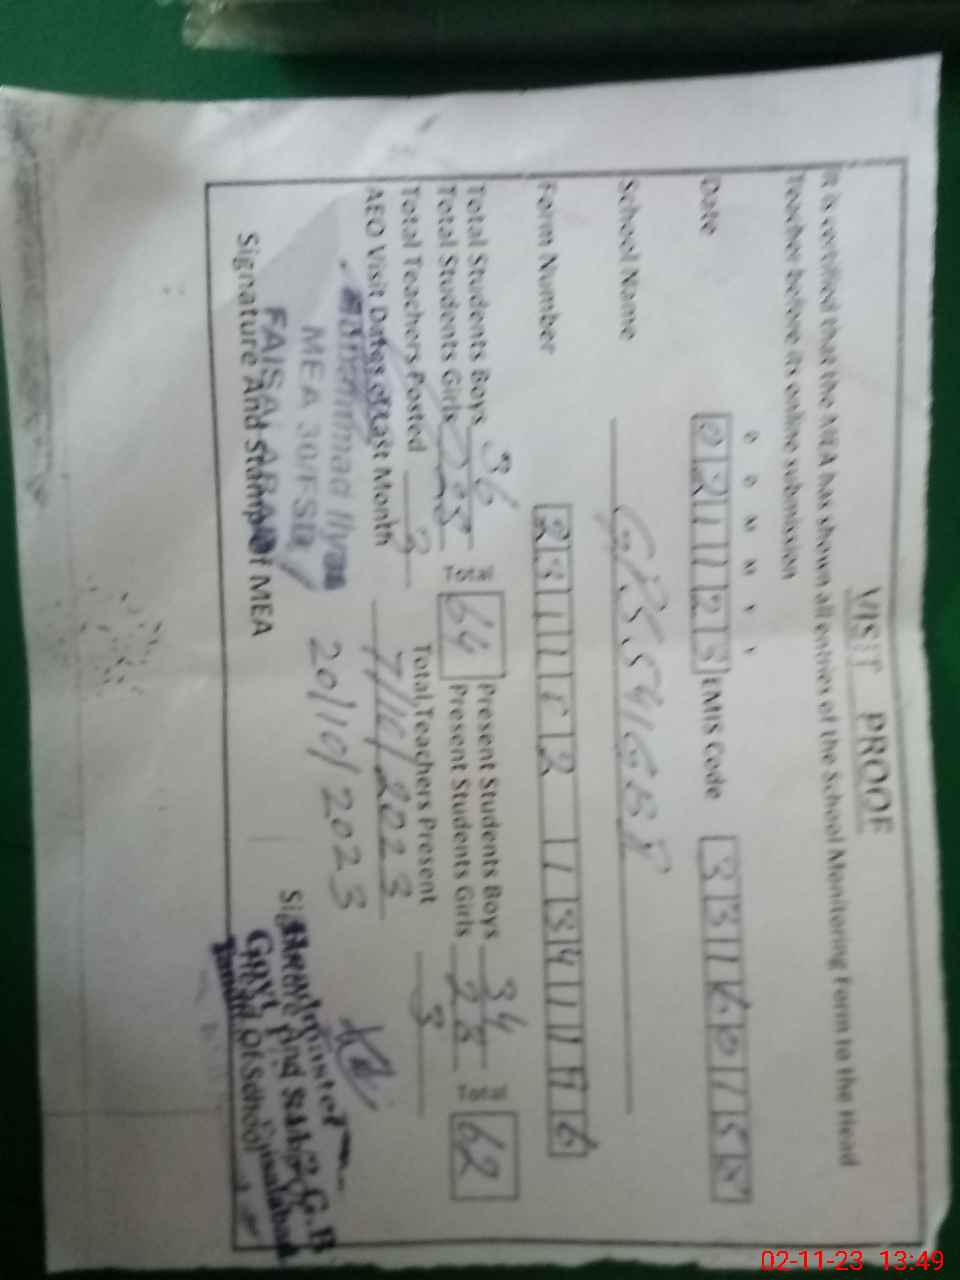 VISIT PROOF
It is certified that the MEA has shown all entries of the School Monitoring Form to the Head
Teacher before its online submission
D D M M Y Y
Date 021123 EMIS Code 33110158
School Name GPS 541 GB
Form Number
Total Students Boys 36 Total 64 Present Students Boys 34 Total 62
Total Students Girls 28 Present Students Girls 28
Total Teachers Posted 3 Total Teachers Present 3
AEO Visit Dates of Last Month 7/10/2023
20/10/2023
Muhammad Ilyas
MEA 30/FSD
FAISALABAD
Signature And Stamp of MEA
Signature And Stamp
Head Of School
02-11-23 13:49